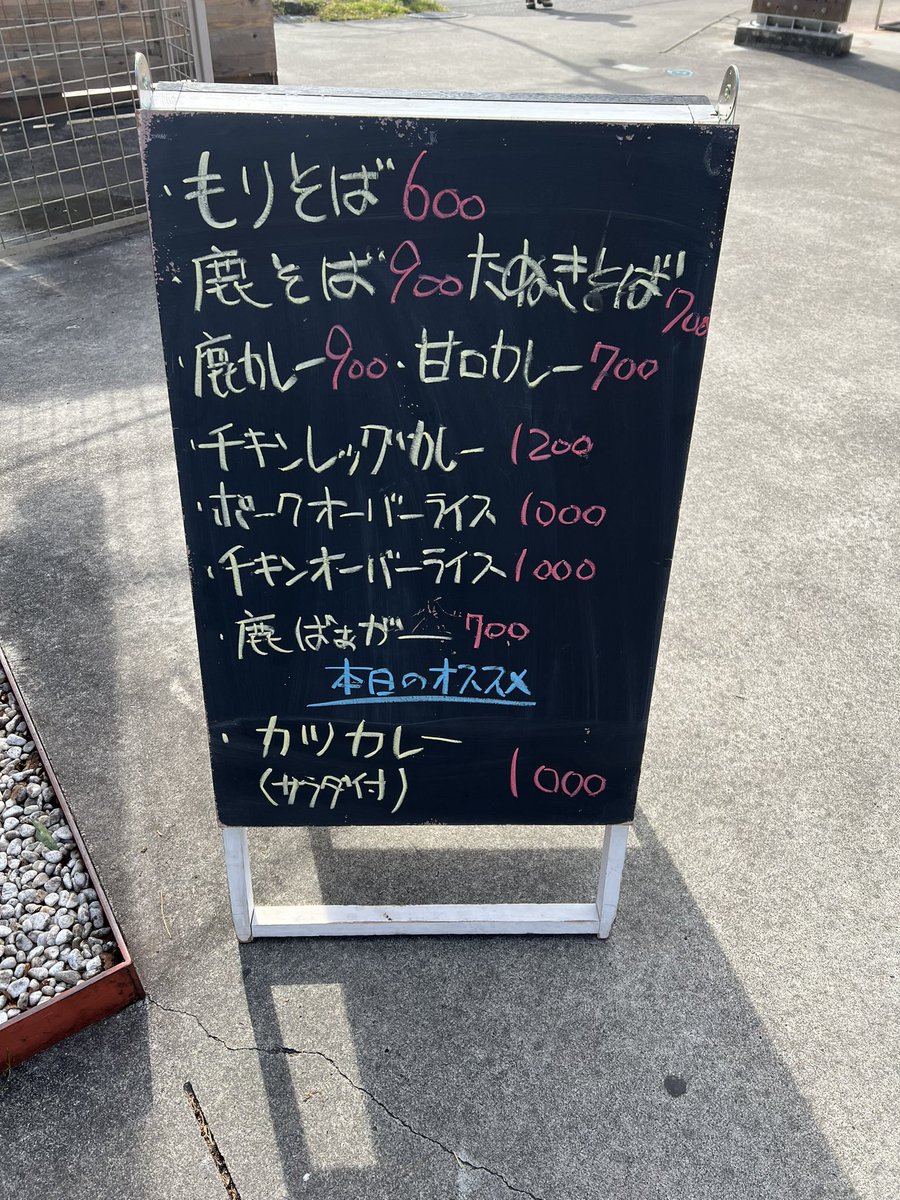 ・もりそば 600
・鹿そば 900 たぬきそば 700
・鹿カレー 900 ・甘口カレー 700
・チキンレッグカレー 1200
・ポークオーバーライス 1000
・チキンオーバーライス 1000
・鹿ばぁがー 700
本日のオススメ
・カツカレー
(サラダ付) 1000